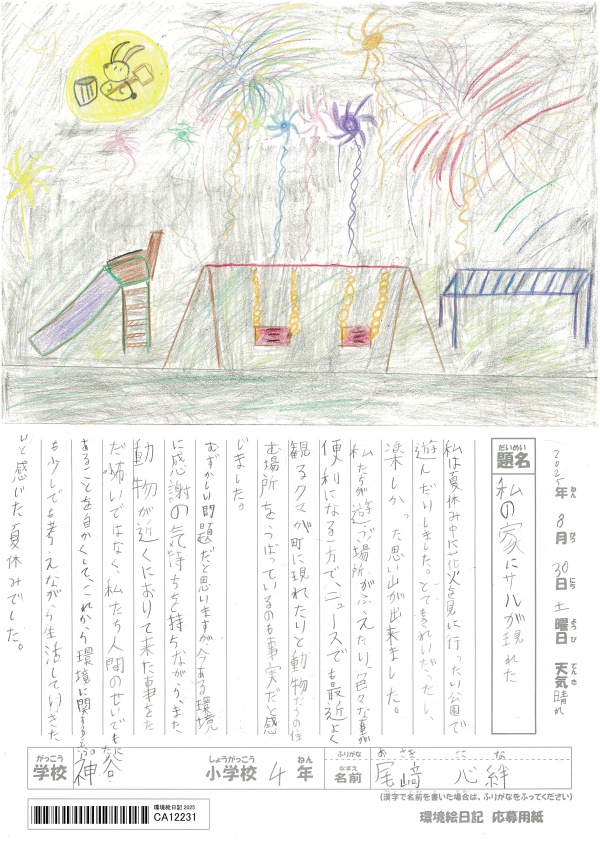 2025年 8月 30日 土曜日 天気 晴れ
ねん がつ にち ようび てんき
だいめい
題名
私の家にサルが現れた
私は夏休み中に花火を見に行ったり公園で
遊んだりしました。とてもきれいだったし、
楽しかった思い出が出来ました。
私たちが遊ぶ場所がふえたり、色々な事が
便利になる一方で、ニュースでも最近よく
観るクマが町に現れたりと動物たちの住
む場所をうばっているのも事実だと感
じました。
むずかしい問題だと思いますが今ある環境
に感謝の気持ちを持ちながら、また
動物が近くにおりて来た事をた
だ怖いではなく、私たち人間のせいでも
あることを自かくして、これから環境に関する
も少しでも考えながら生活していきた
いと感じた夏休みでした。
がっこう
学校
神谷
しょうがっこう
小学校
4年
ねん
ふりがな
おさき ここな
なまえ
名前
尾﨑 心絆
(漢字で名前を書いた場合は、ふりがなをふってください)
環境絵日記 2025
CA12231
環境絵日記 応募用紙